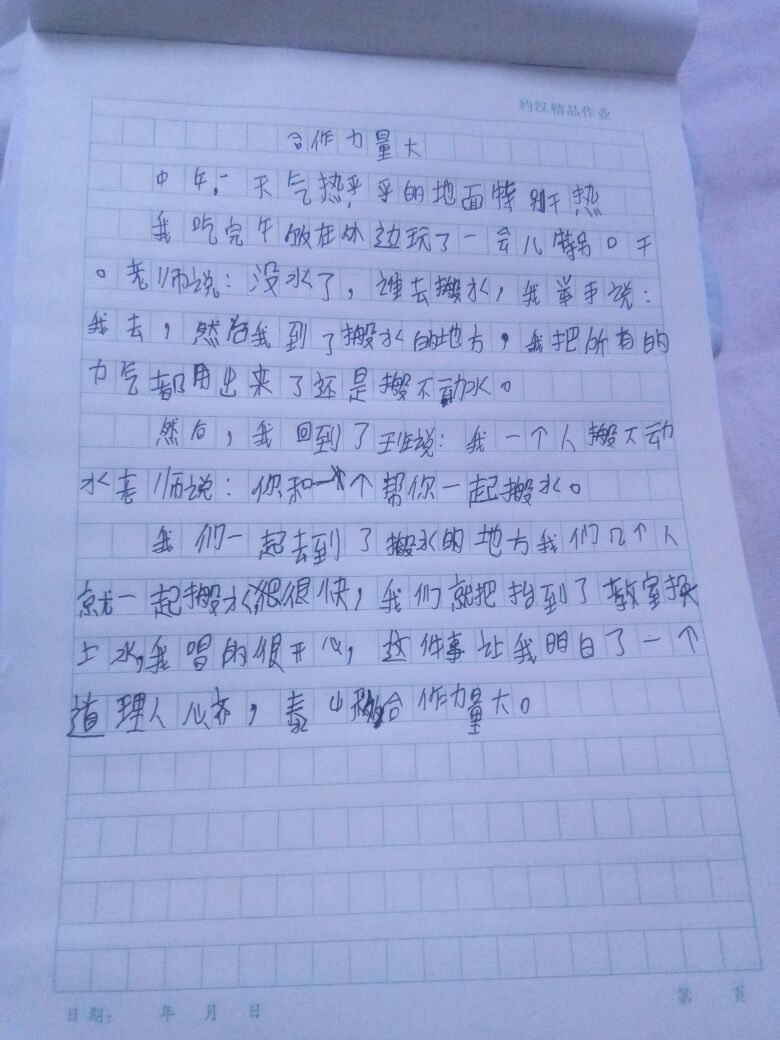 约汉精品作业
合作力量大
中午,天气热乎乎的地面特别干热
我吃完午饭在外边玩了一会儿特别口干
。老师说:没水了,谁去搬水,我举手说:
我去,然后我到了搬水的地方,我把所有的
力气都用出来了还是搬不动水。
然后,我回到了班说:我一个人搬不动
水老师说:你和一个帮你一起搬水。
我们一起去到了搬水的地方我们几个人
就一起搬水很很快,我们就把抬到了教室换
上水,我唱的很开心,这件事让我明白了一个
道理人心齐,泰山移合作力量大。
日期: 年 月 日
第 页